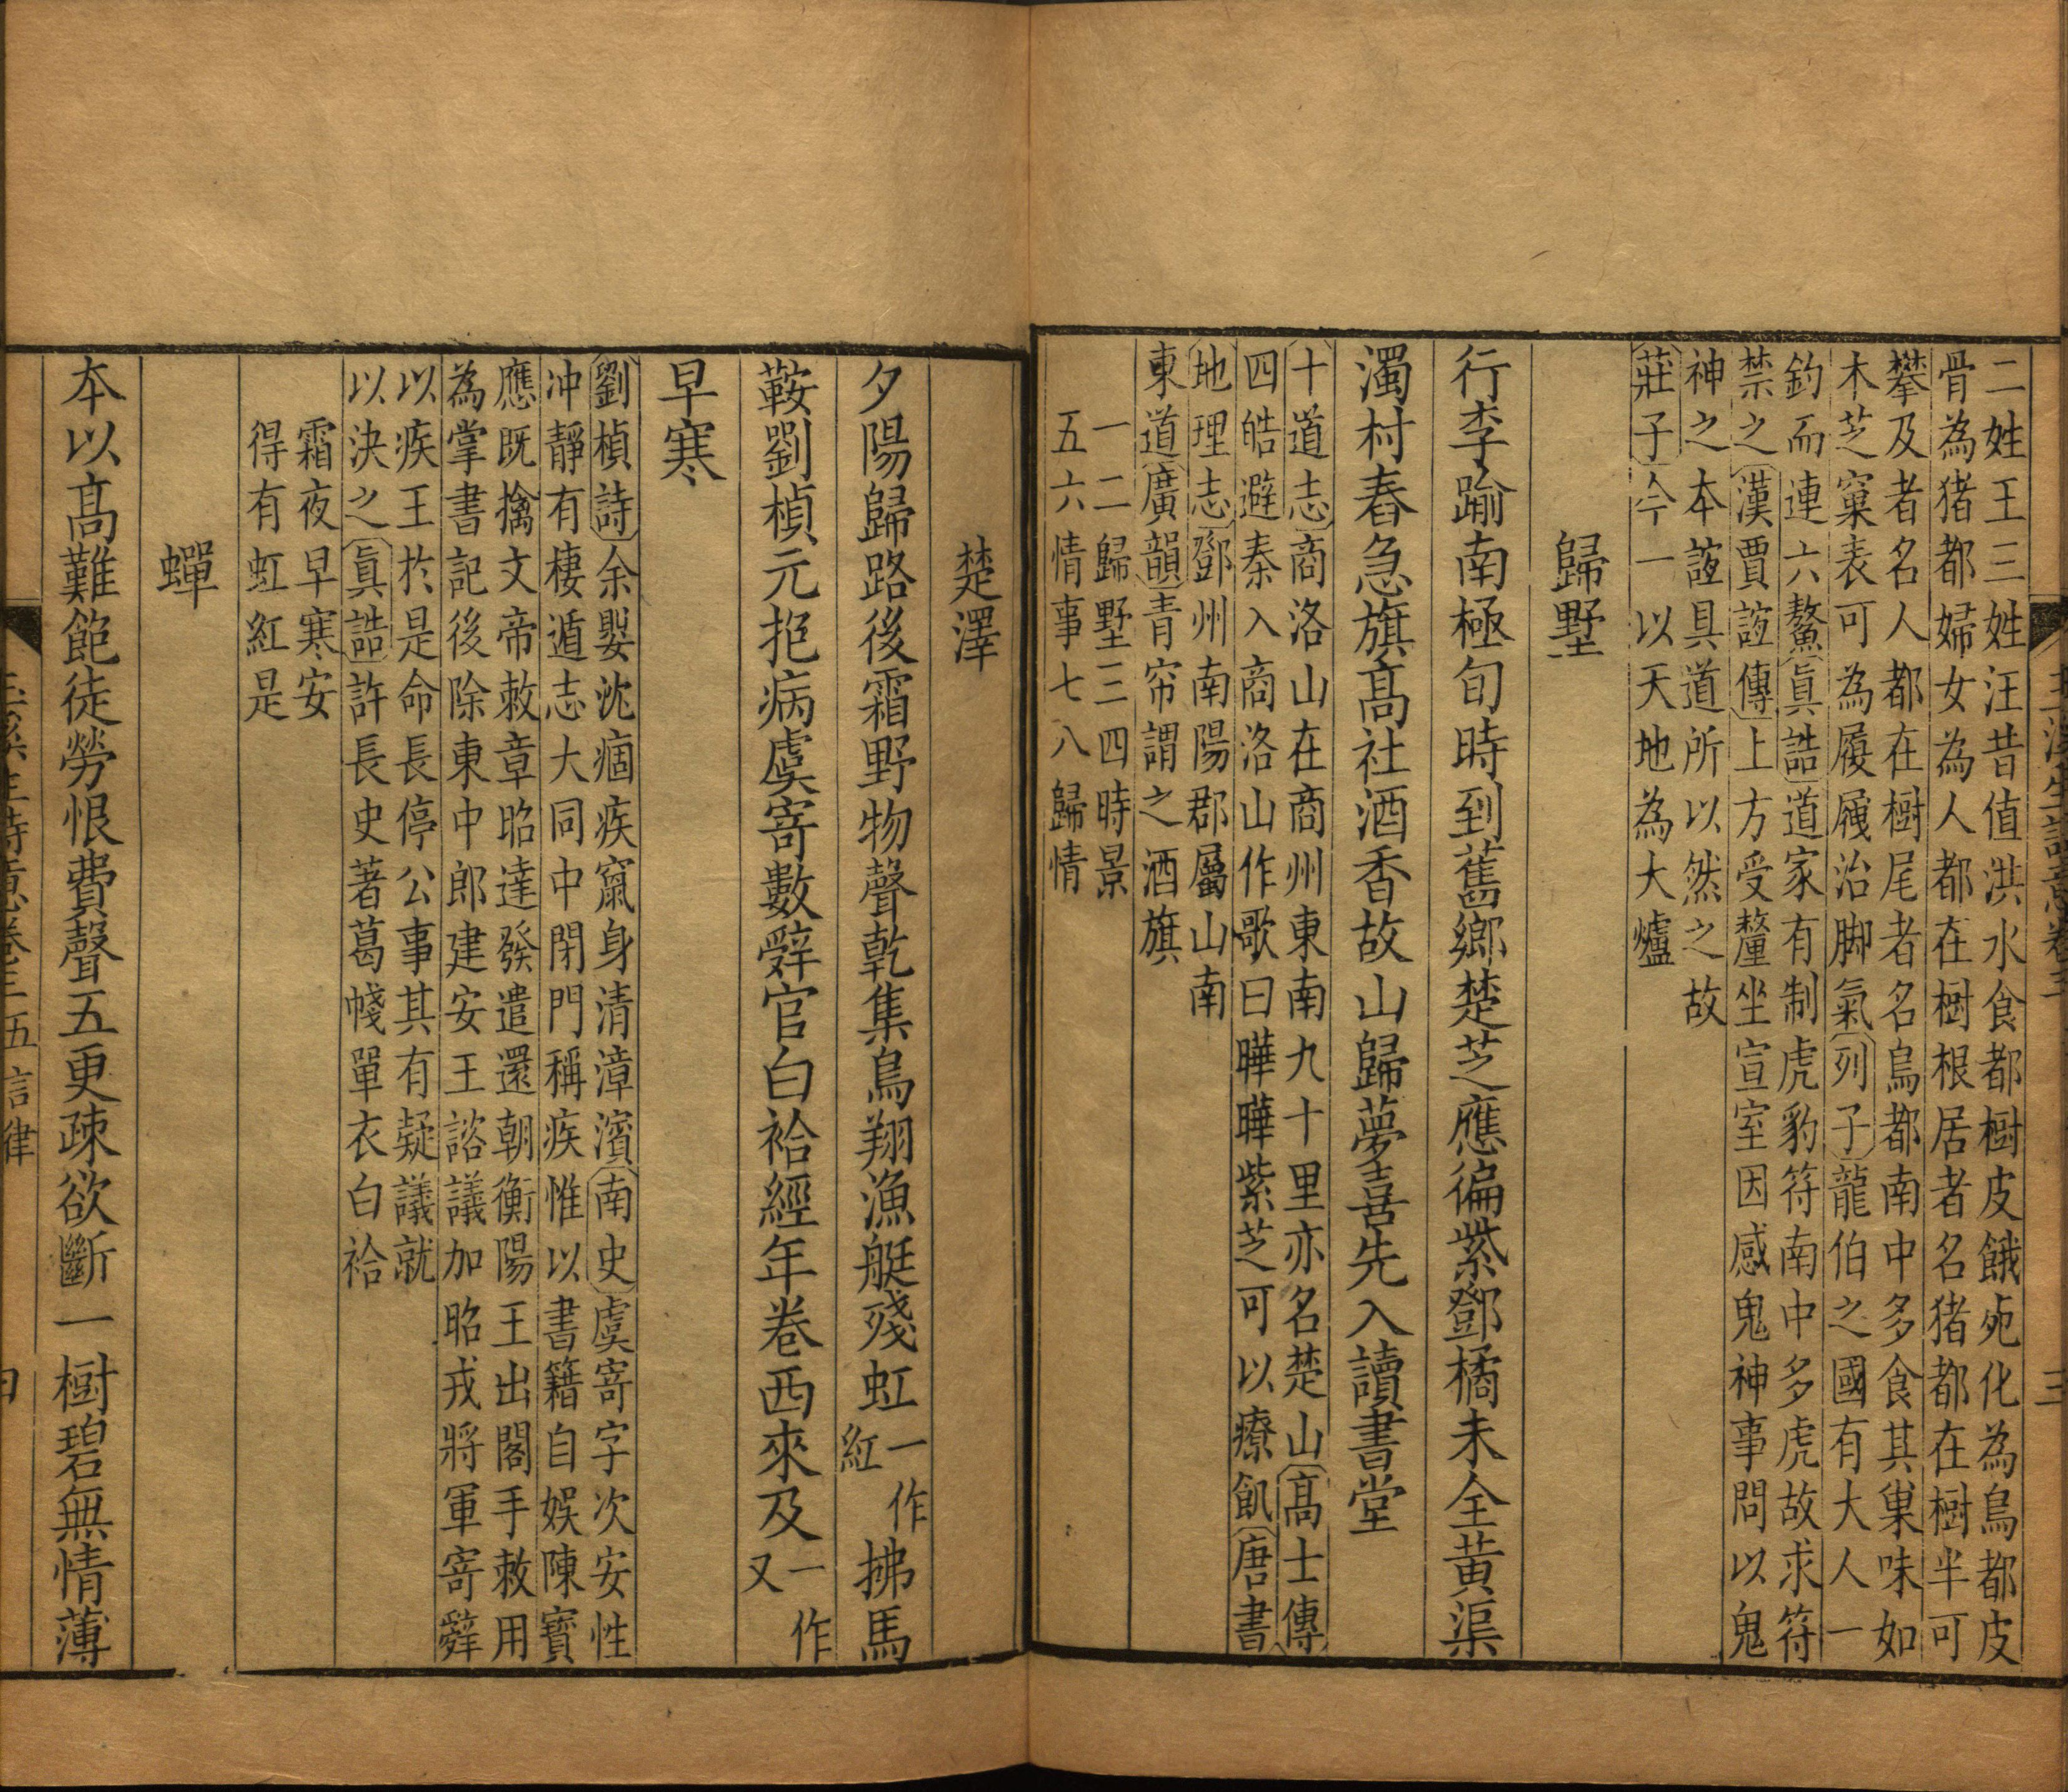 二姓王三姓汪昔值洪水食都樹皮餓死化為鳥都皮
骨為猪都婦女為人都在樹根居者名猪都在樹半可
攀及者名人都在樹尾者名鳥都南中多食其巢味如
木芝窠表可為履屧治脚氣列子龍伯之國有大人一
釣而連六鰲真誥道家有制虎豹符南中多虎故求符
禁之漢賈誼傳上方受釐坐宣室因感鬼神事問以鬼
神之本誼具道所以然之故
莊子今一以天地為大爐
歸墅
行李踰南極旬時到舊鄉楚芝應徧紫鄧橘未全黃渠
濁村舂急旗高社酒香故山歸夢喜先入讀書堂
十道志商洛山在商州東南九十里亦名楚山高士傳
四皓避秦入商洛山作歌曰曄曄紫芝可以療飢唐書
地理志鄧州南陽郡屬山南
東道廣韻青帘謂之酒旗
一二歸墅三四時景
五六情事七八歸情
楚澤
夕陽歸路後霜野物聲乾集鳥翔漁艇殘虹一作紅拂馬
鞍劉楨元抱病虞寄數辭官白袷經年卷西來及一作又
早寒
劉楨詩余嬰沈痼疾竄身清漳濱南史虞寄字次安性
冲靜有棲遁志大同中閉門稱疾惟以書籍自娛陳寶
應既擒文帝敕章昭達發遣還朝衡陽王出閣手敕用
為掌書記後除東中郎建安王諮議加昭戎將軍寄辭
以疾王於是命長停公事其有疑議就
以決之真誥許長史著葛帴單衣白袷
霜夜早寒安
得有虹紅是
蟬
本以高難飽徒勞恨費聲五更疎欲斷一樹碧無情薄